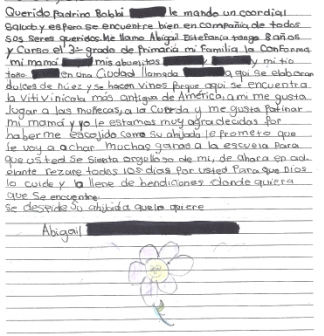 Querido Padrino Bobbi le mando un coordial
Saludo y espero se encuentre bien en compañia de todos
sos seres queridos. Me llamo Abigail Estefania tengo 8 años
y Curso el 3er grado de Primaria mi familia la Conforma
mi mamá mis abuelitos y y mi tio
toño. en una Ciudad llamada aqui se elaboran
dulces de núez y se hacen Vinos porque aqui se encuentra
la Vitivinicola más antigua de América, a mi me gusta
Jugar a las muñecas, a la Cuerda y me gusta Patinar
mi mamá y yo le estamos muy agradecidas Por
haberme escojido Como su ahijada le Prometo que
le voy a echar muchas ganas a la escuela Para
que usted se sienta orgulloso de mi, de ahora en ad.
elante rezare todos los dias Por usted Para que Dios
lo cuide y lo llene de bendiciones donde quiera
que se encuentre.
se despide su ahijada que lo quiere
Abigail